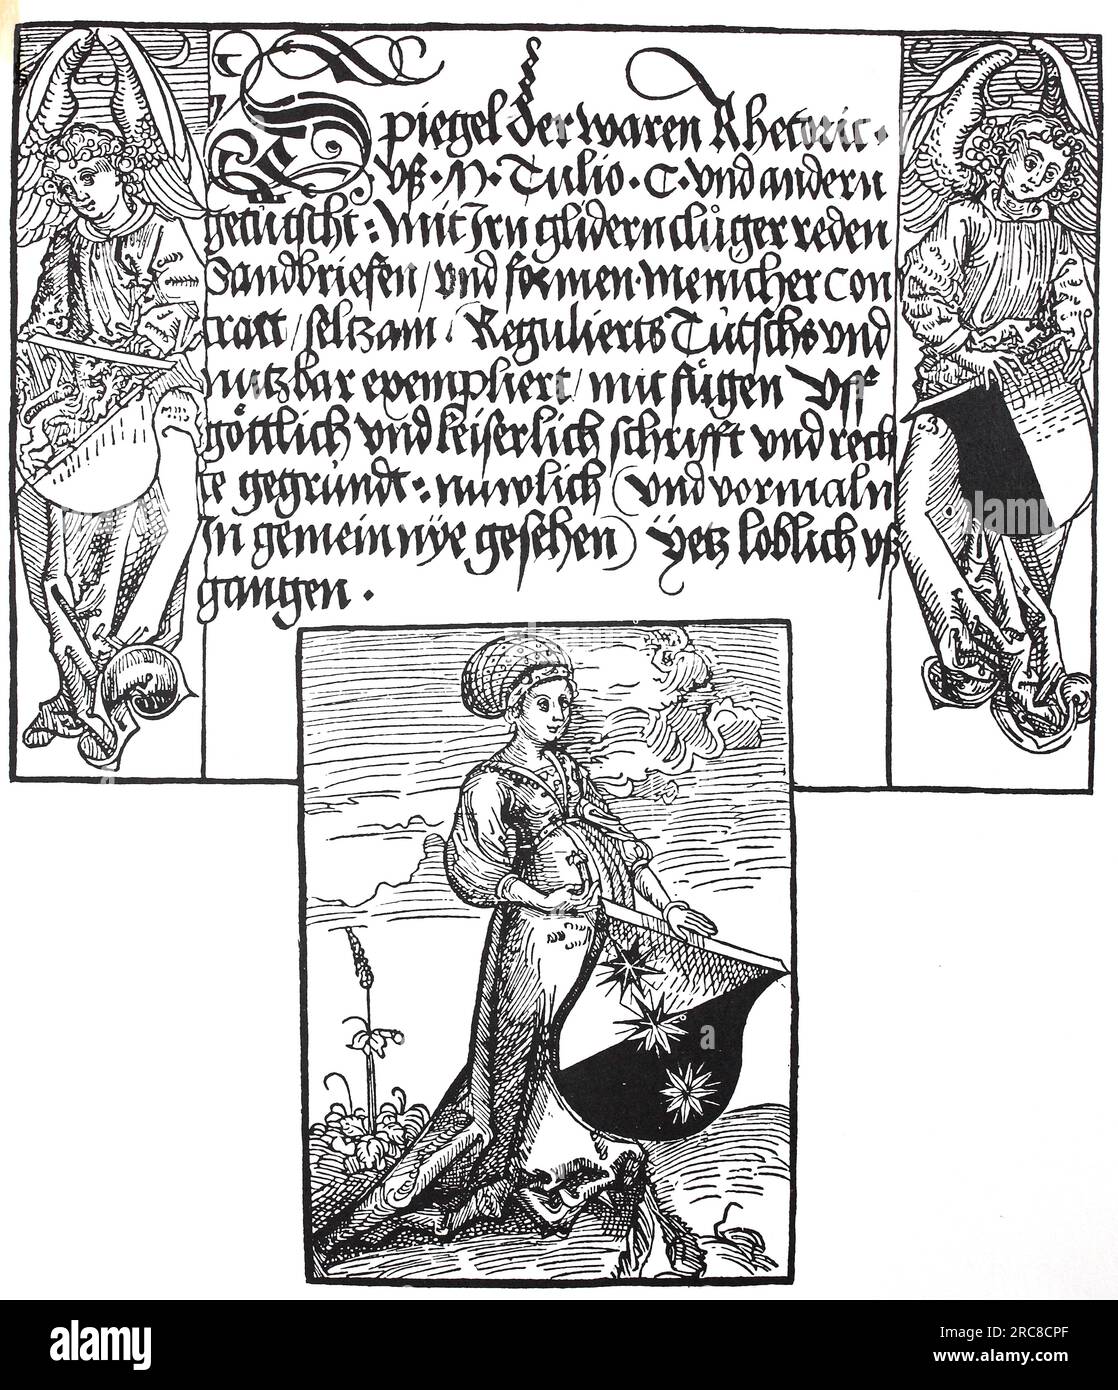 Spiegel der waren Rhetoric .
vß . M . Tulio . C . vnd andern
getütscht : Mit Irn glidern clůger reden
Sandbriefen / vnd formen . menicher con
tratt / seltzam . Regulierts Tütschs vnd
nutzbar exempliert / mit fůgen vff
göttlich vnd keiserlich schrifft vnd rech
te gegründt : nuwlich ( vnd vormaln
In gemein nÿe gesehen ) ÿetz loblich vß
gangen .
a
alamy
Image ID: 2RC8CPF
www.alamy.com